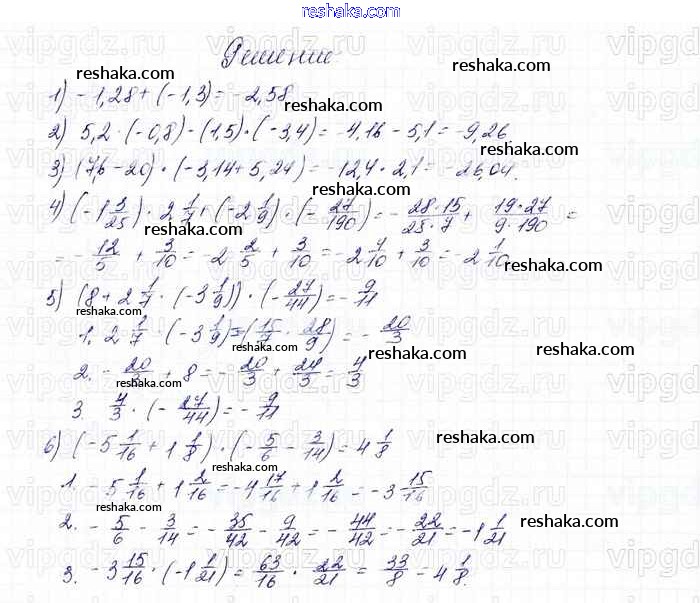 reshaka.com
Решение:
reshaka.com
reshaka.com
1) -1,28 + (-1,3) = -2,58
reshaka.com
2) 5,2 · (-0,8) - (1,5) · (-3,4) = -4,16 - 5,1 = -9,26
reshaka.com
3) (7,6 - 20) · (-3,14 + 5,24) = -12,4 · 2,1 = -26,04.
reshaka.com
4) (-1 3/25) · 2 1/7 + (-2 1/9) · (-27/190) = -28·15/25·7 + 19·27/9·190 =
reshaka.com
= -12/5 + 3/10 = -2 2/5 + 3/10 = -2 4/10 + 3/10 = -2 1/10
reshaka.com
5) (8 + 2 1/7 · (-3 1/9)) · (-27/44) = -9/11
1. 2 1/7 · (-3 1/9) = (15/7 · 28/9) = -20/3
reshaka.com
reshaka.com
2. -20/3 + 8 = -20/3 + 24/3 = 4/3
reshaka.com
3. 4/3 · (-27/44) = -9/11
6) (-5 1/16 + 1 1/8) · (-5/6 - 3/14) = 4 1/8
reshaka.com
reshaka.com
1. -5 1/16 + 1 2/16 = -4 17/16 + 1 2/16 = -3 15/16
2. -5/6 - 3/14 = -35/42 - 9/42 = -44/42 = -22/21 = -1 1/21
reshaka.com
3. -3 15/16 · (-1 1/21) = 63/16 · 22/21 = 33/8 = 4 1/8.
reshaka.com